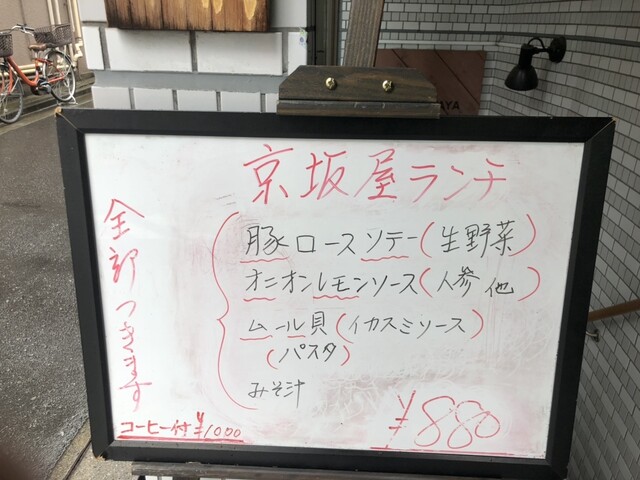 京坂屋ランチ
豚ロースソテー(生野菜)
オニオンレモンソース(人参他)
ムール貝(イカスミソース)
(パスタ)
みそ汁
全部つきます
コーヒー付¥1000
¥880
AYA